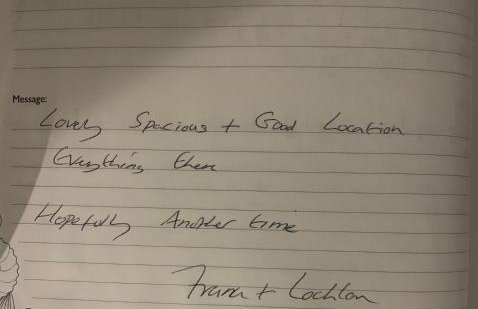 Message:
Lovely Spacious + Good Location
Everything there
Hopefully Another time
+ Lochlan